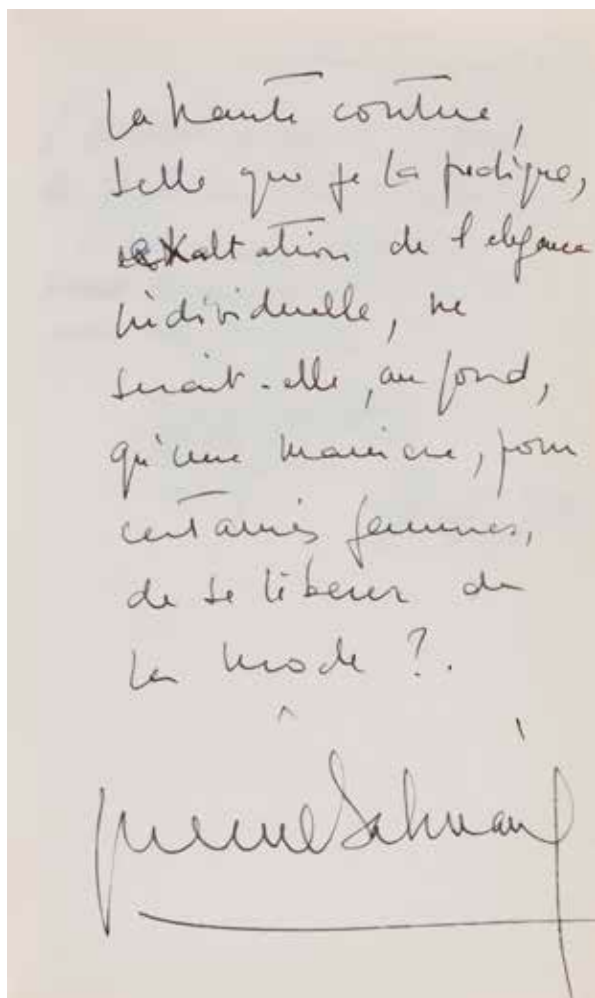 La haute couture,
telle que je la pratique,
exaltation de l'elegance
individuelle, ne
serait-elle, au fond,
qu'une manière, pour
certaines femmes,
de se libérer de
la mode ?.